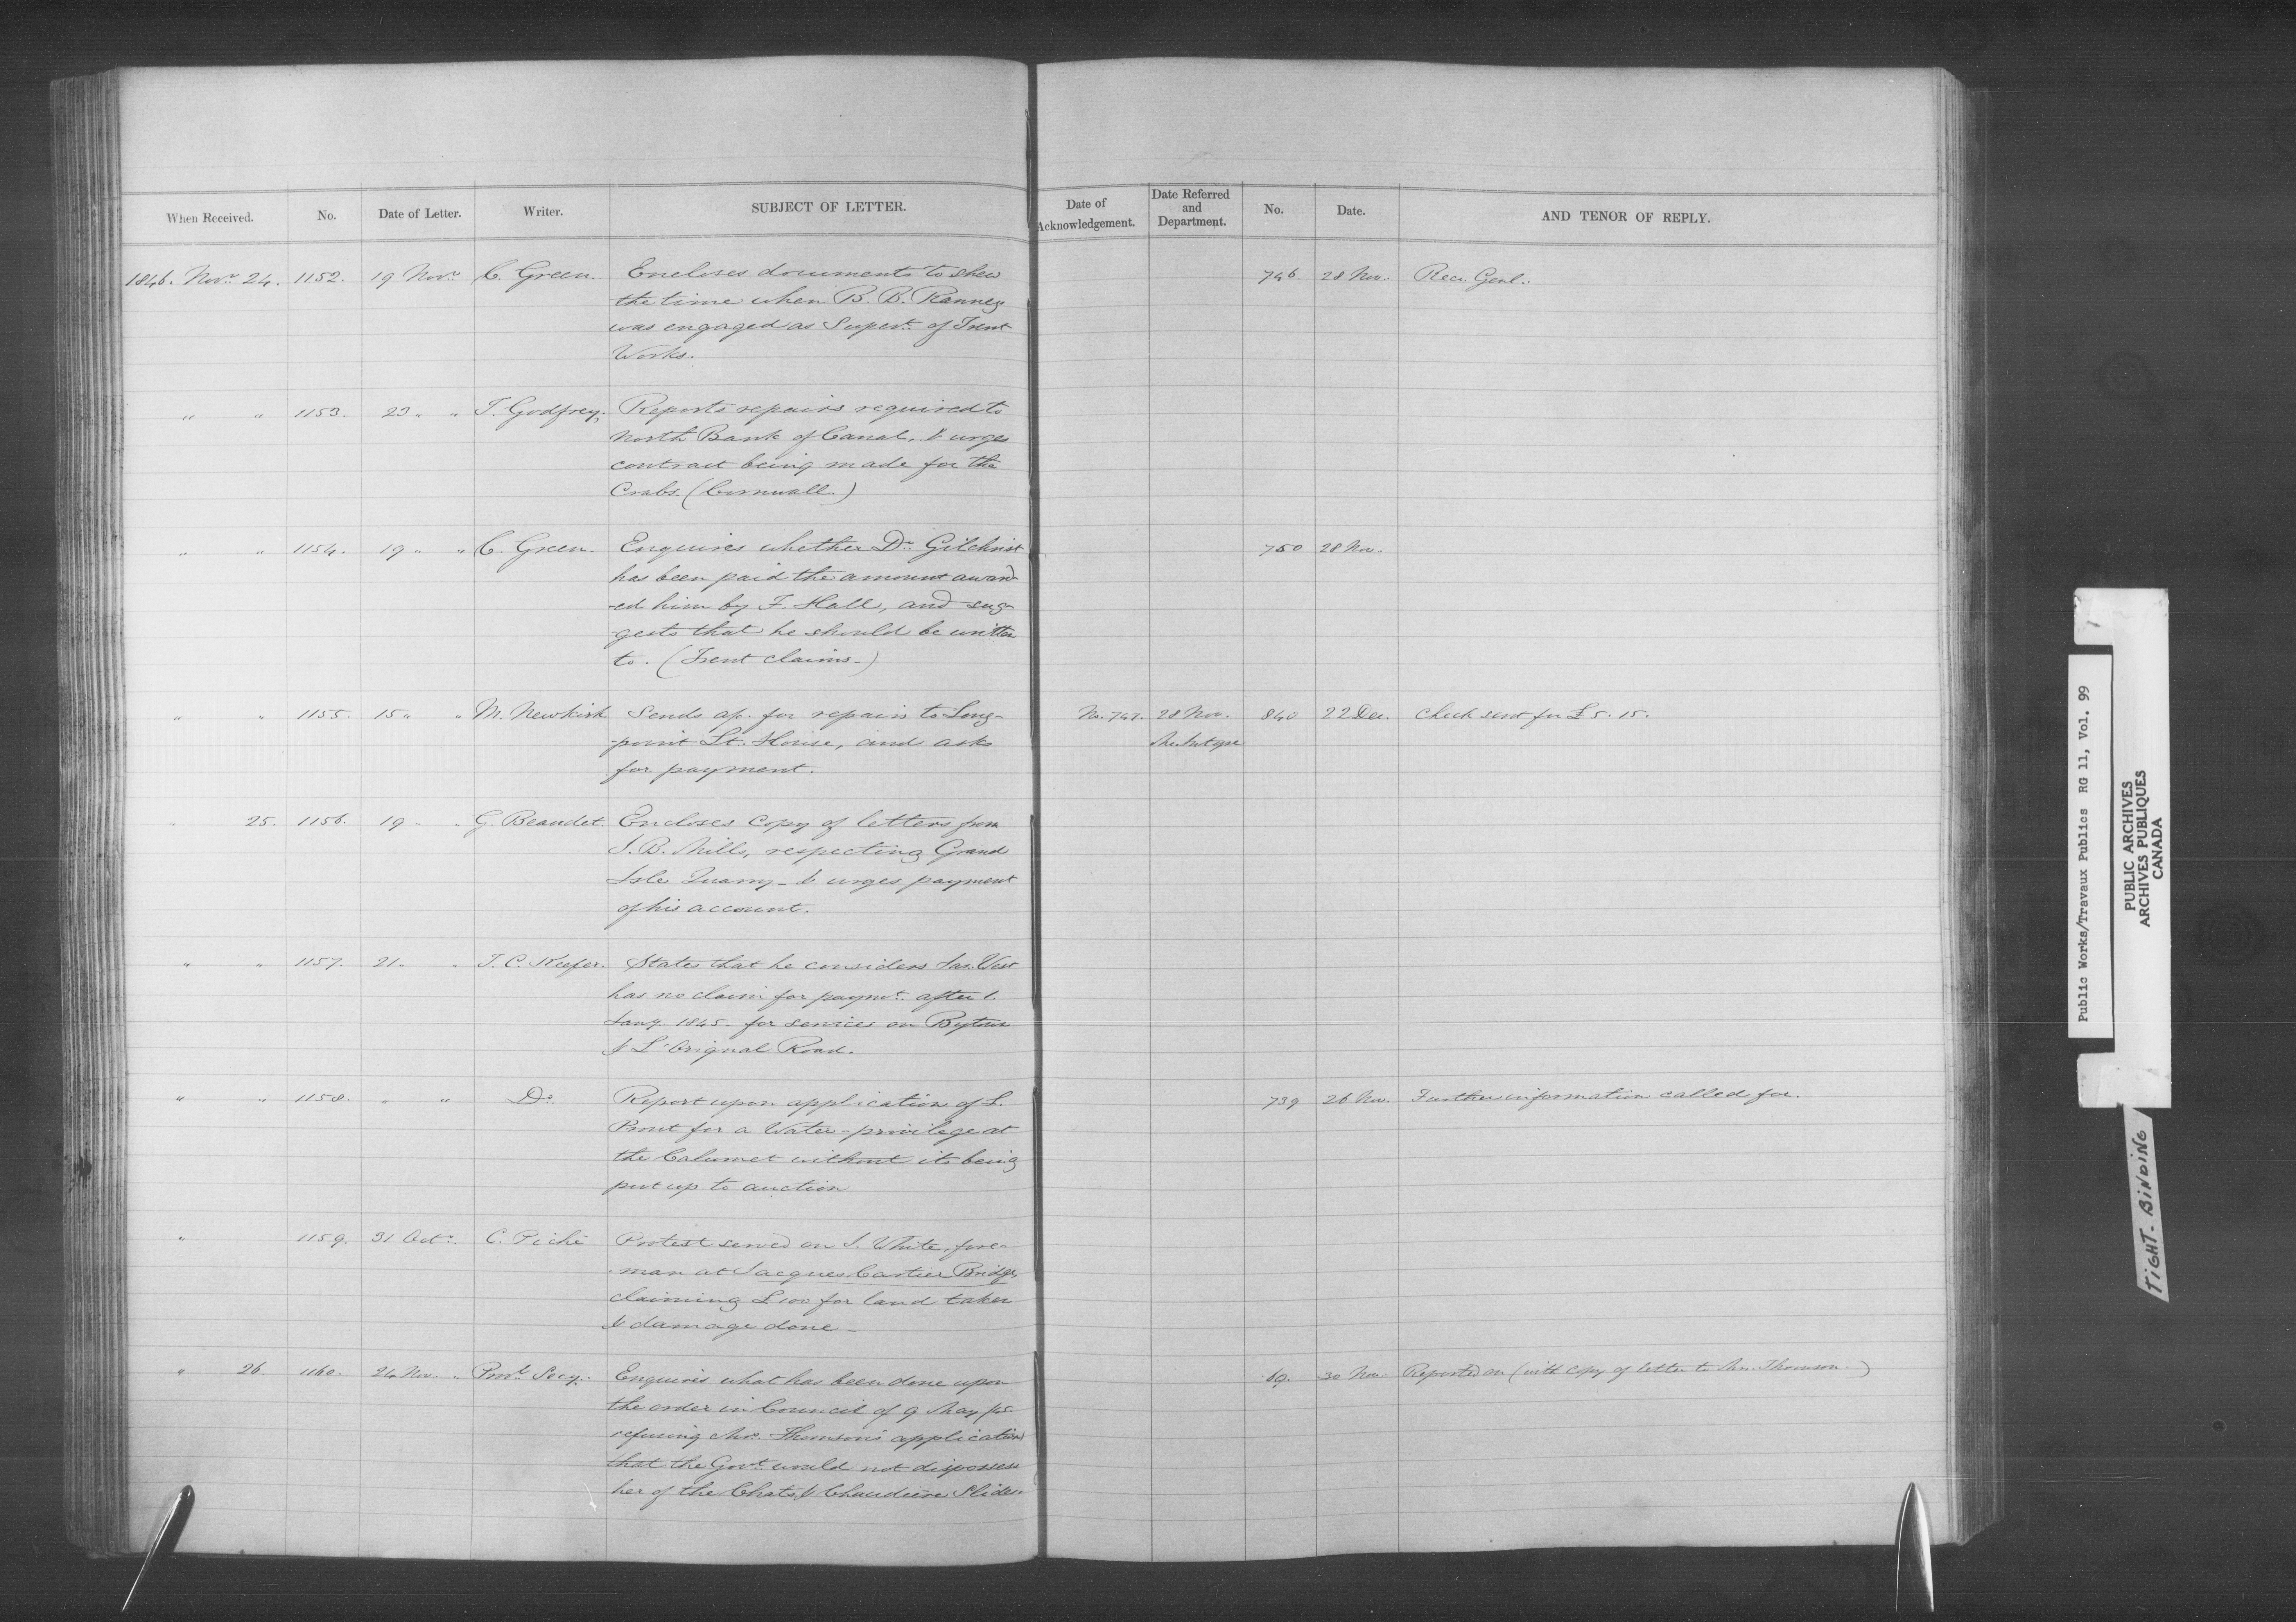 When Received. No. Date of Letter. Writer. SUBJECT OF LETTER. Date of Acknowledgement. Date Referred and Department. No. Date. AND TENOR OF REPLY.
1846. Novr. 24. 1152. 19 Novr. C. Green. Encloses documents to shew 746. 28 Nov. Recr. Genl.
the time when B. B. Ranney
was engaged as Supert. of Trent
Works.
" " 1153. 23 " " T. Godfrey. Reports repairs required to
North Bank of Canal, & urges
contract being made for the
Crabs. (Cornwall.)
" " 1154. 19 " " C. Green. Enquires whether Dr. Gilchrist 750 28 Nov.
has been paid the amount award-
-ed him by F. Hall, and sug-
-gests that he should be written
to. (Trent claims.)
" " 1155. 15 " " M. Newkirk Sends ap. for repairs to Long- No. 747. 28 Nov. 840 22 Dec. Check sent for £5. 15.
-point Lt. House, and asks
for payment.
" 25. 1156. 19 " " G. Beaudet. Encloses copy of letters from
J. B. Mills, respecting Grand
Isle Quarry - & urges payment
of his account.
" " 1157. 21 " " T. C. Keefer. States that he considers Jas. West
has no claim for paymt. after 1.
Jany. 1845 - for services on Bytown
& L'Orignal Road.
" " 1158. " " Do. Report upon application of L. 739 26 Nov. Further information called for.
Prout for a Water-privilege at
the Calumet without its being
put up to auction
" 1159. 31 Octr. C. Piché Protest served on J. White, fore-
-man at Jacques Cartier Bridge
claiming £100 for land taken
& damage done -
" 26 1160. 24 Nov. " Provl. Secy. Enquires what has been done upon 69. 30 Nov. Reported on (with copy of letter to Mrs. Thomson.)
the order in Council of 9 May /45
refusing Mrs. Thomson's application
that the Govt. would not dispossess
her of the Chats & Chaudière Slides.
Public Works/Travaux Publics RG 11, Vol. 99
PUBLIC ARCHIVES
ARCHIVES PUBLIQUES
CANADA
TIGHT-BINDING